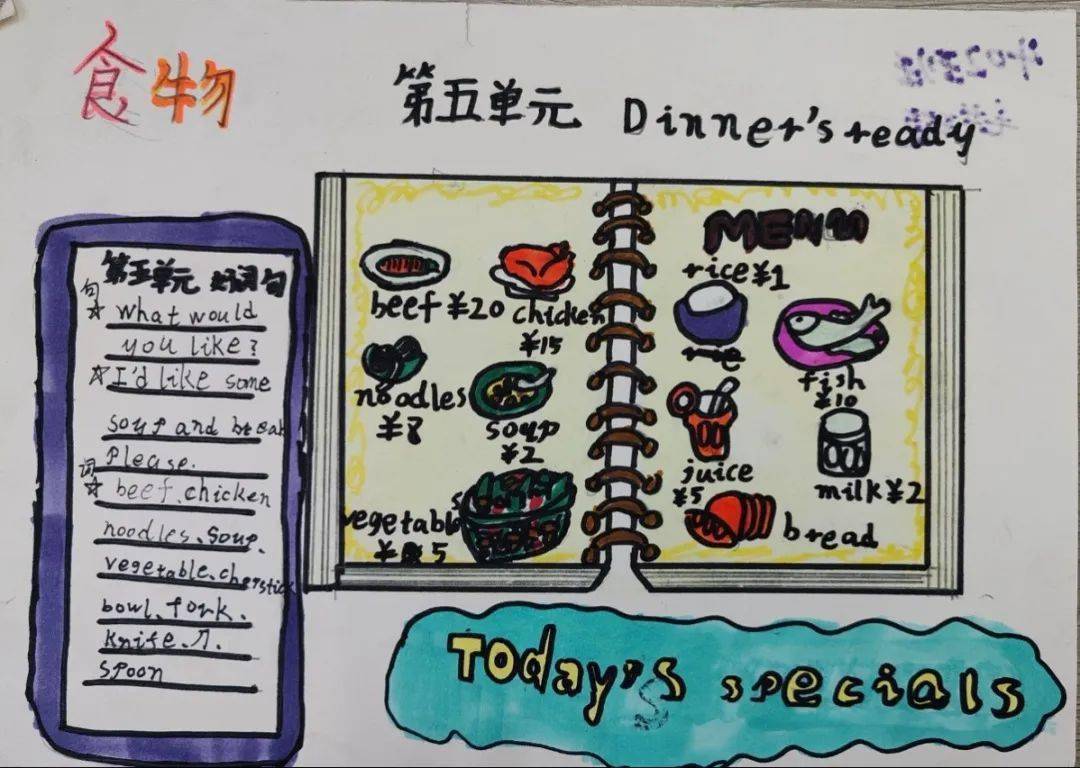 食物
第五单元 Dinner's ready
第五单元 好词句
句
☆ What would
you like?
☆ I'd like some
soup and bread
please.
词
☆ beef、chicken
noodles、soup、
vegetable、chopstick
bowl、fork、
knife、刀、
spoon
beef ¥20
chicken
¥15
noodles
¥8
soup
¥2
vegetables
¥5
MENU
rice ¥1
rie
fish
¥10
juice
¥5
milk ¥2
bread
Today's specials